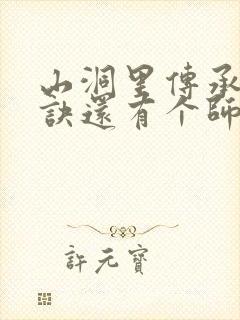 山洞里傳承
訣還有个師
許元寶